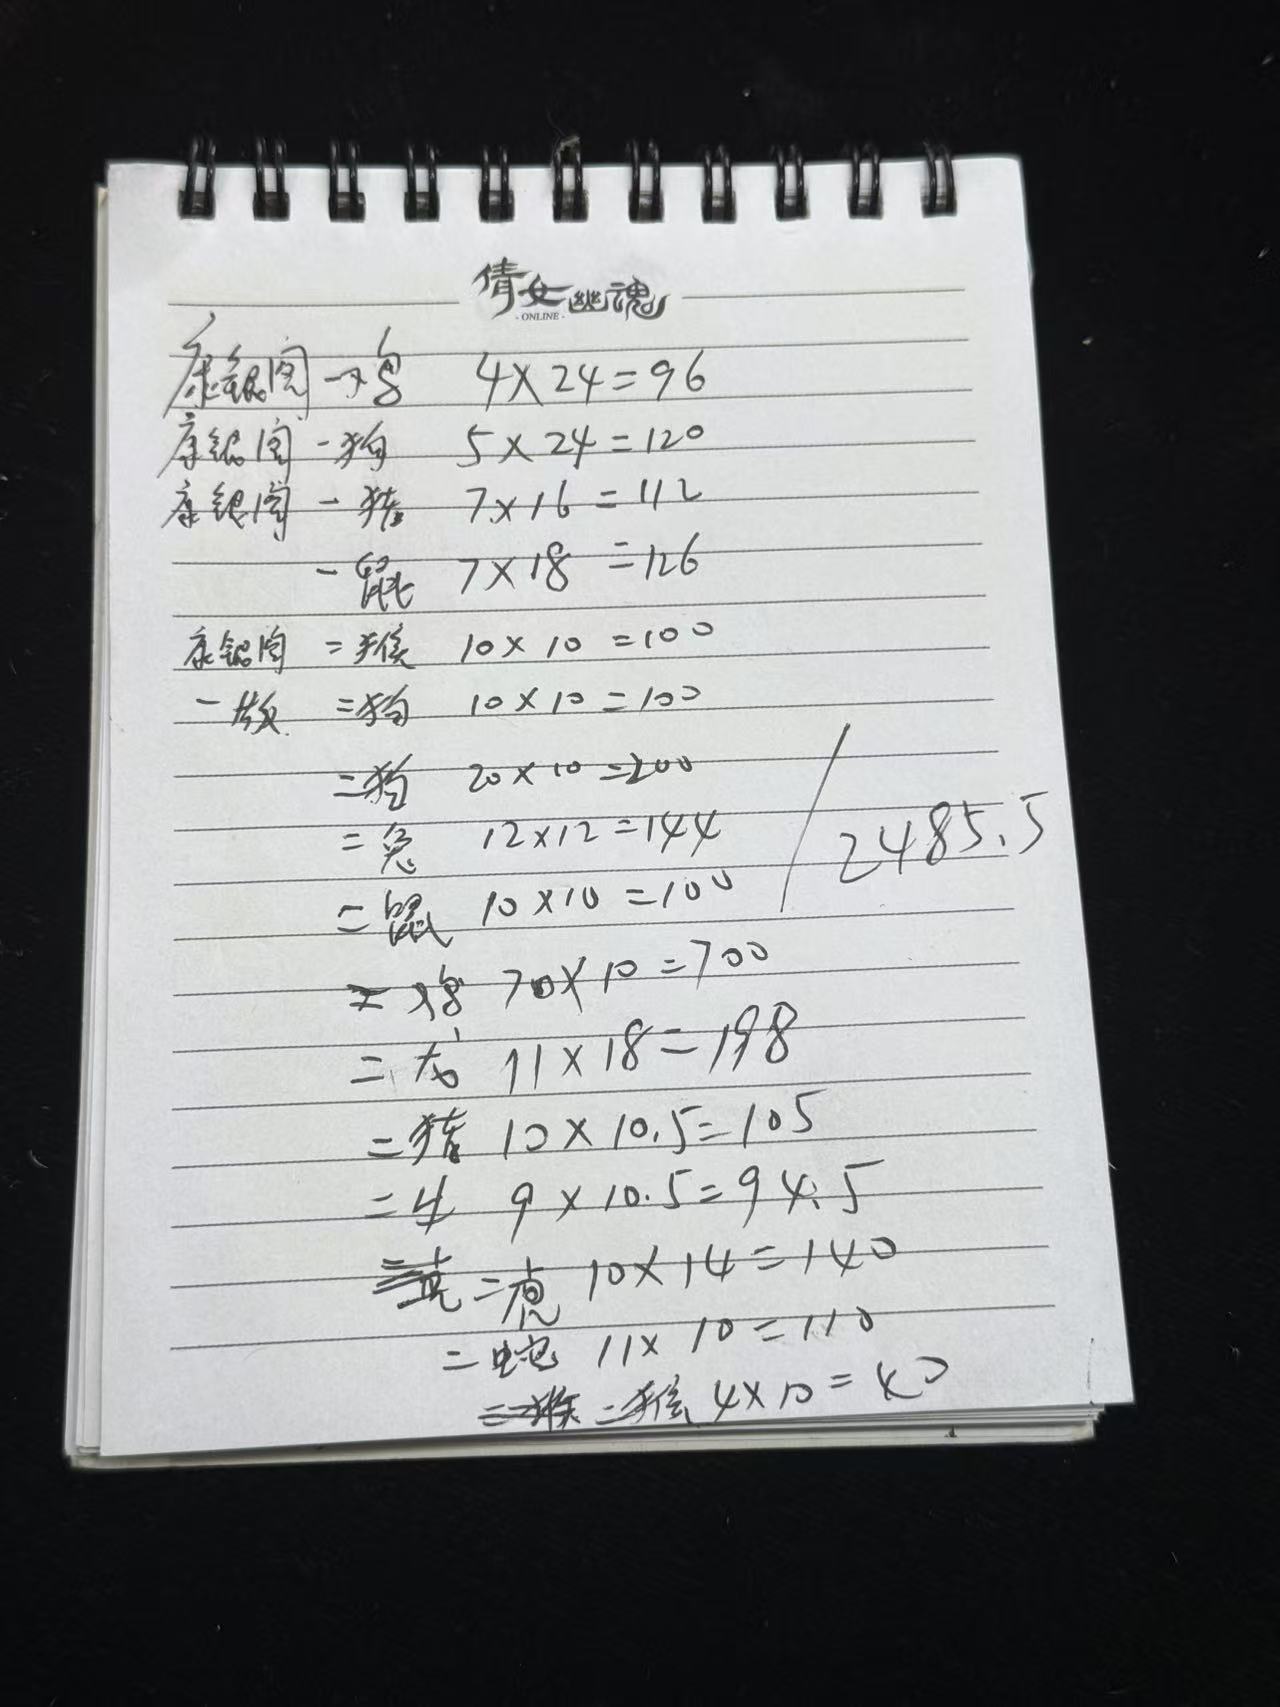 倩女幽魂
·ONLINE·
康银阁 一鸡 4×24=96
康银阁 一狗 5×24=120
康银阁 一猪 7×16=112
一鼠 7×18=126
康银阁 二猴 10×10=100
一版 二狗 10×10=100
二狗 20×10=200
二兔 12×12=144
2485.5
二鼠 10×10=100
二鸡 70×10=700
二龙 11×18=198
二猪 10×10.5=105
二牛 9×10.5=94.5
二虎 10×14=140
二蛇 11×10=110
二猴 4×10=40